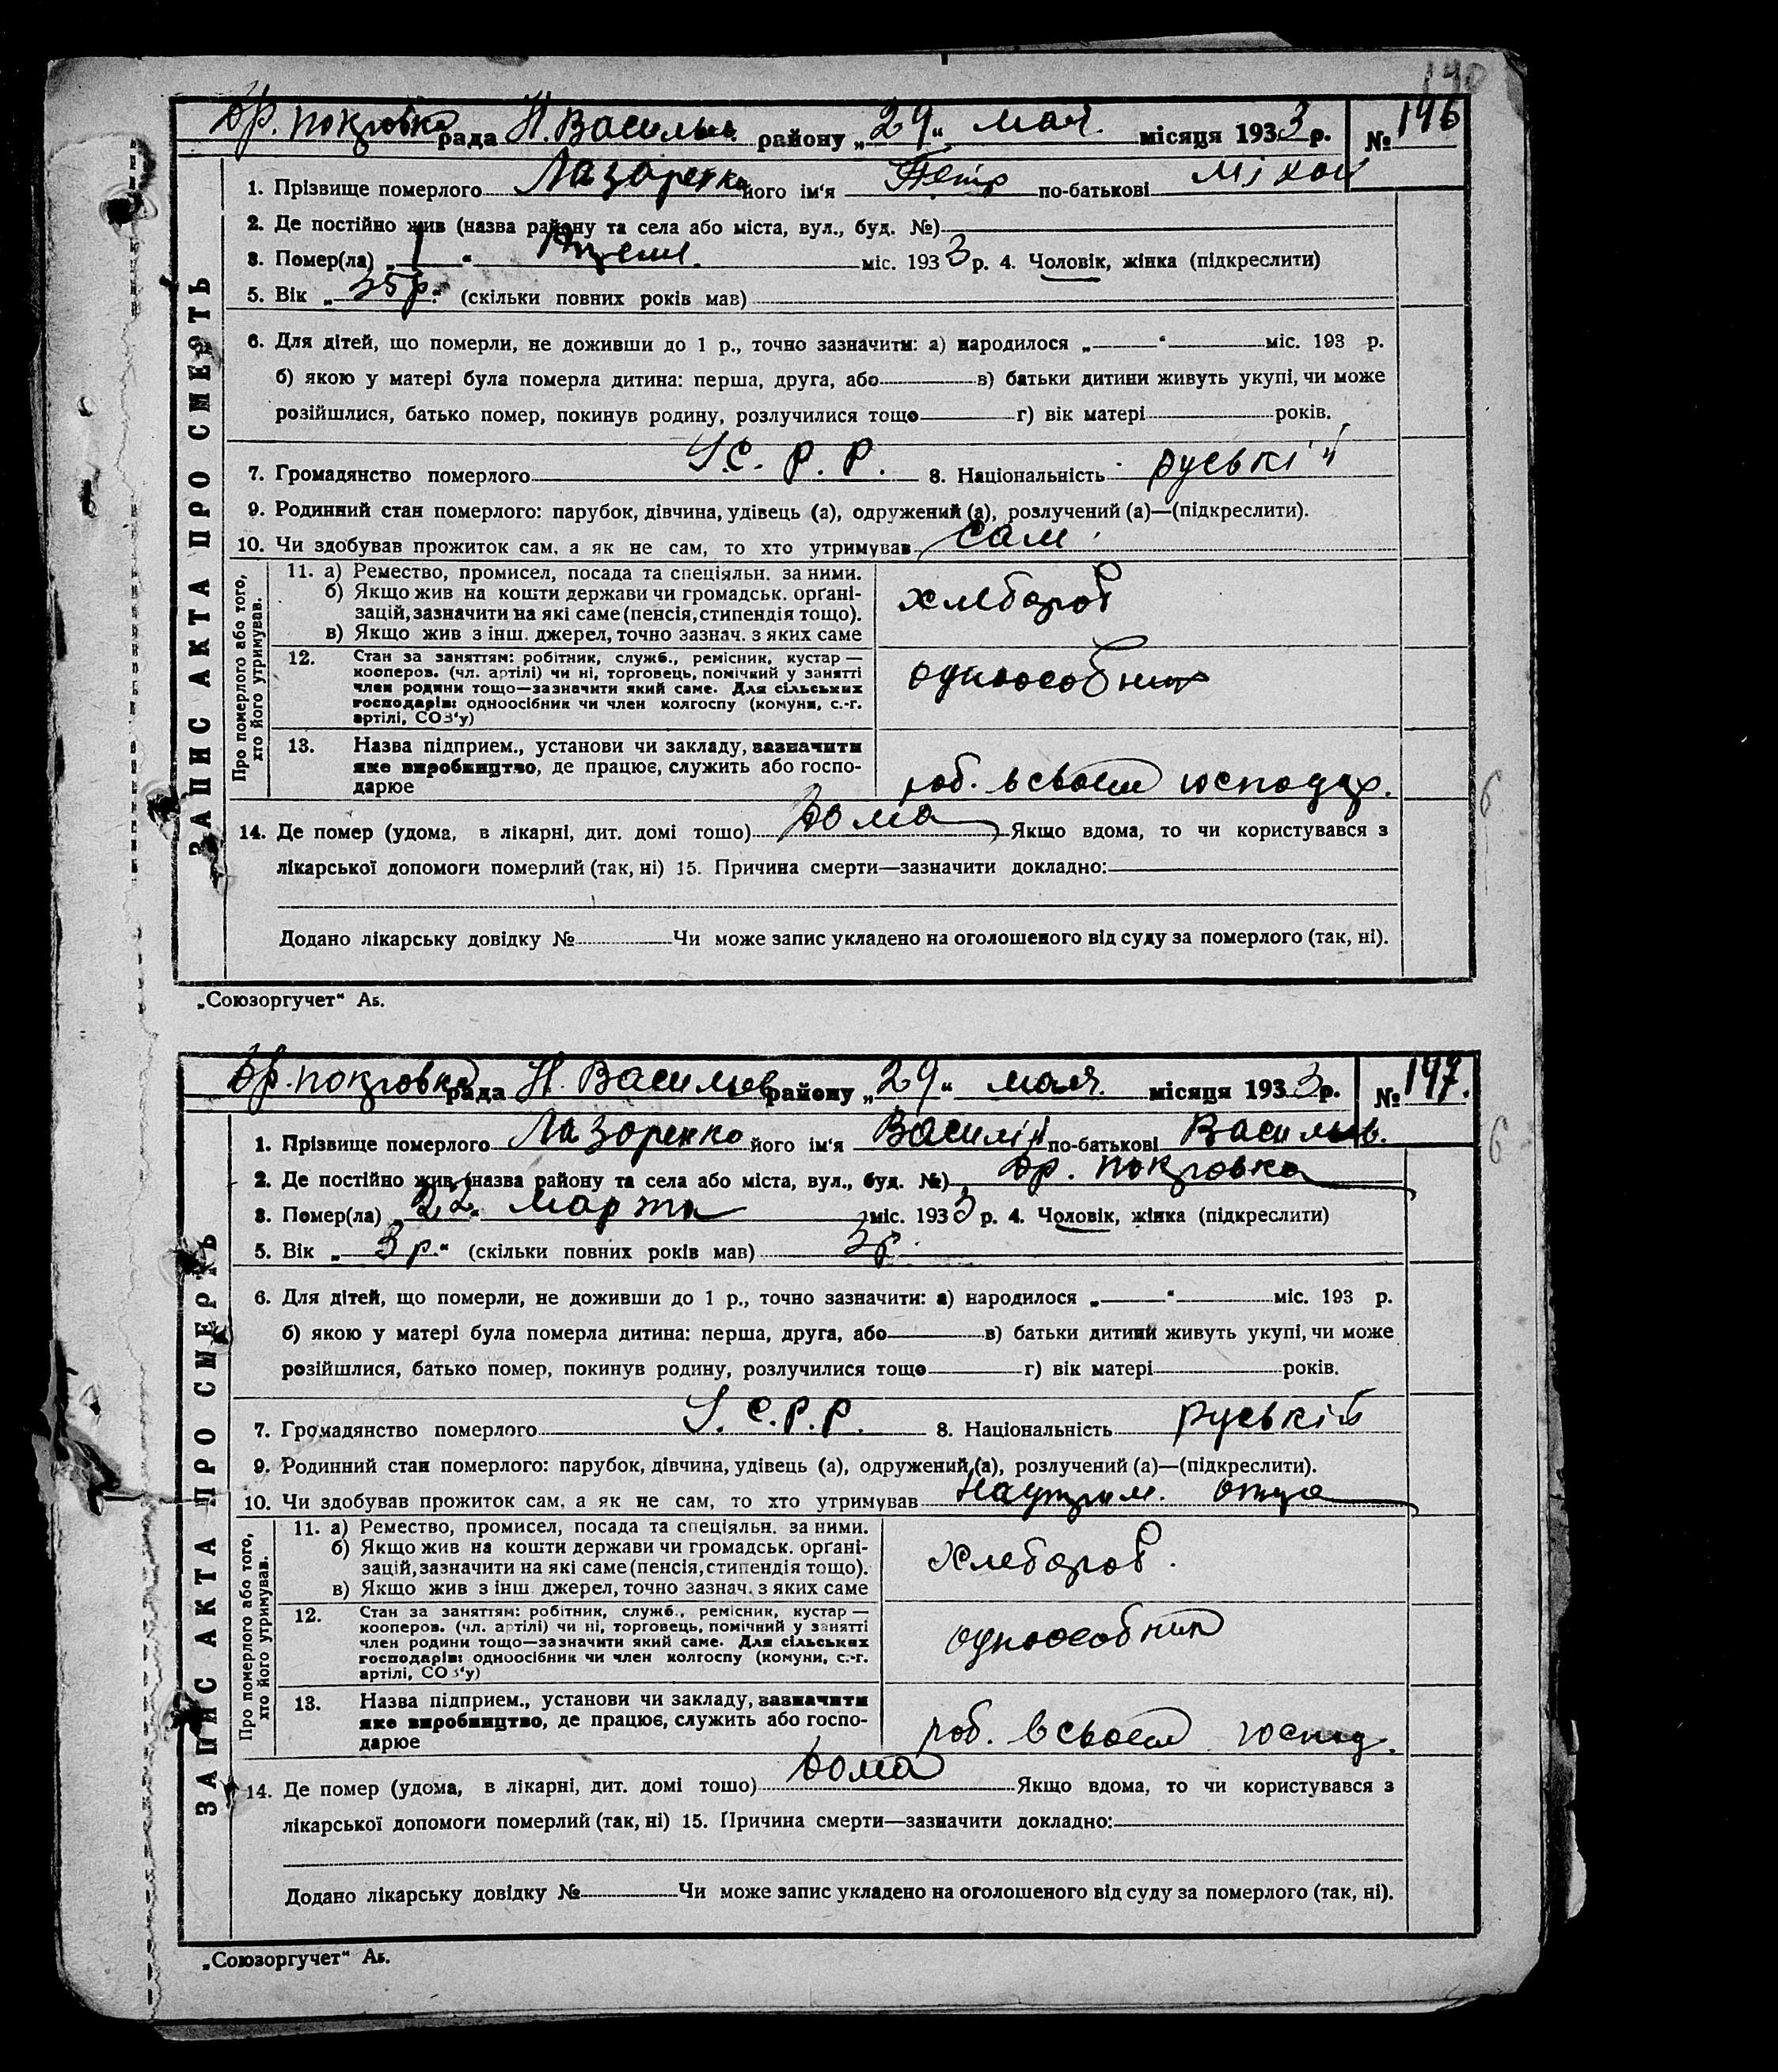 140
Др. Покровка рада Н. Васильев. району „29“ мая місяця 1933 р. № 146
1. Прізвище померлого Лазоренко його ім‘я Петр по-батькові Міхай
2. Де постійно жив (назва району та села або міста, вул., буд. №)
3. Помер(ла) „1“ міс. 1933 р. 4. Чоловік, жінка (підкреслити)
5. Вік „35 р.“ (скільки повних років мав)
6. Для дітей, що померли, не доживши до 1 р., точно зазначити: а) народилося „ “ міс. 193 р.
б) якою у матері була померла дитина: перша, друга, або в) батьки дитини живуть укупі, чи може
розійшлися, батько помер, покинув родину, розлучилися тощо г) вік матері років.
7. Громадянство померлого У.С.Р.Р. 8. Національність руській
9. Родинний стан померлого: парубок, дівчина, удівець (а), одружений (а), розлучений (а)—(підкреслити).
10. Чи здобував прожиток сам, а як не сам, то хто утримував сам
ЗАПИС АКТА ПРО СМЕРТЬ
Про померлого або того,
хто його утримував.
11. а) Ремество, промисел, посада та спеціяльн. за ними.
б) Якщо жив на кошти держави чи громадськ. орґані-
зацій, зазначити на які саме (пенсія, стипендія тощо).
в) Якщо жив з інш. джерел, точно зазнач. з яких саме
хлебороб
12. Стан за заняттям: робітник, служб., ремісник, кустар —
кооперов. (чл. артілі) чи ні, торговець, помічний у занятті
член родини тощо—зазначити який саме. Для сільських
господарів: одноосібник чи член колгоспу (комуни, с.-г.
артілі, СОЗ‘у)
одноособник
13. Назва підприєм., установи чи закладу, зазначити
яке виробництво, де працює, служить або госпо-
дарює
роб. в своем господар.
14. Де помер (удома, в лікарні, дит. домі тощо) дома Якщо вдома, то чи користувався з
лікарської допомоги померлий (так, ні) 15. Причина смерти—зазначити докладно:
Додано лікарську довідку № Чи може запис укладено на оголошеного від суду за померлого (так, ні).
„Союзоргучет“ Аб.
Др. Покровка рада Н. Васильев району „29“ мая. місяця 1933 р. № 147.
1. Прізвище померлого Лазоренко його ім‘я Василій по-батькові Васильев.
2. Де постійно жив (назва району та села або міста, вул., буд. №) Др. Покровка
3. Помер(ла) „22“ марта міс. 1933 р. 4. Чоловік, жінка (підкреслити)
5. Вік „3 р.“ (скільки повних років мав) 3 р.
6. Для дітей, що померли, не доживши до 1 р., точно зазначити: а) народилося „ “ міс. 193 р.
б) якою у матері була померла дитина: перша, друга, або в) батьки дитини живуть укупі, чи може
розійшлися, батько помер, покинув родину, розлучилися тощо г) вік матері років.
7. Громадянство померлого У.С.Р.Р. 8. Національність руській
9. Родинний стан померлого: парубок, дівчина, удівець (а), одружений (а), розлучений (а)—(підкреслити).
10. Чи здобував прожиток сам, а як не сам, то хто утримував На утрим. отца
ЗАПИС АКТА ПРО СМЕРТЬ
Про померлого або того,
хто його утримував.
11. а) Ремество, промисел, посада та спеціяльн. за ними.
б) Якщо жив на кошти держави чи громадськ. орґані-
зацій, зазначити на які саме (пенсія, стипендія тощо).
в) Якщо жив з інш. джерел, точно зазнач. з яких саме
Хлебороб.
12. Стан за заняттям: робітник, служб., ремісник, кустар —
кооперов. (чл. артілі) чи ні, торговець, помічний у занятті
член родини тощо—зазначити який саме. Для сільських
господарів: одноосібник чи член колгоспу (комуни, с.-г.
артілі, СОЗ‘у)
одноособник
13. Назва підприєм., установи чи закладу, зазначити
яке виробництво, де працює, служить або госпо-
дарює
роб. в своем господ.
14. Де помер (удома, в лікарні, дит. домі тощо) дома Якщо вдома, то чи користувався з
лікарської допомоги померлий (так, ні) 15. Причина смерти—зазначити докладно:
Додано лікарську довідку № Чи може запис укладено на оголошеного від суду за померлого (так, ні).
„Союзоргучет“ Аб.